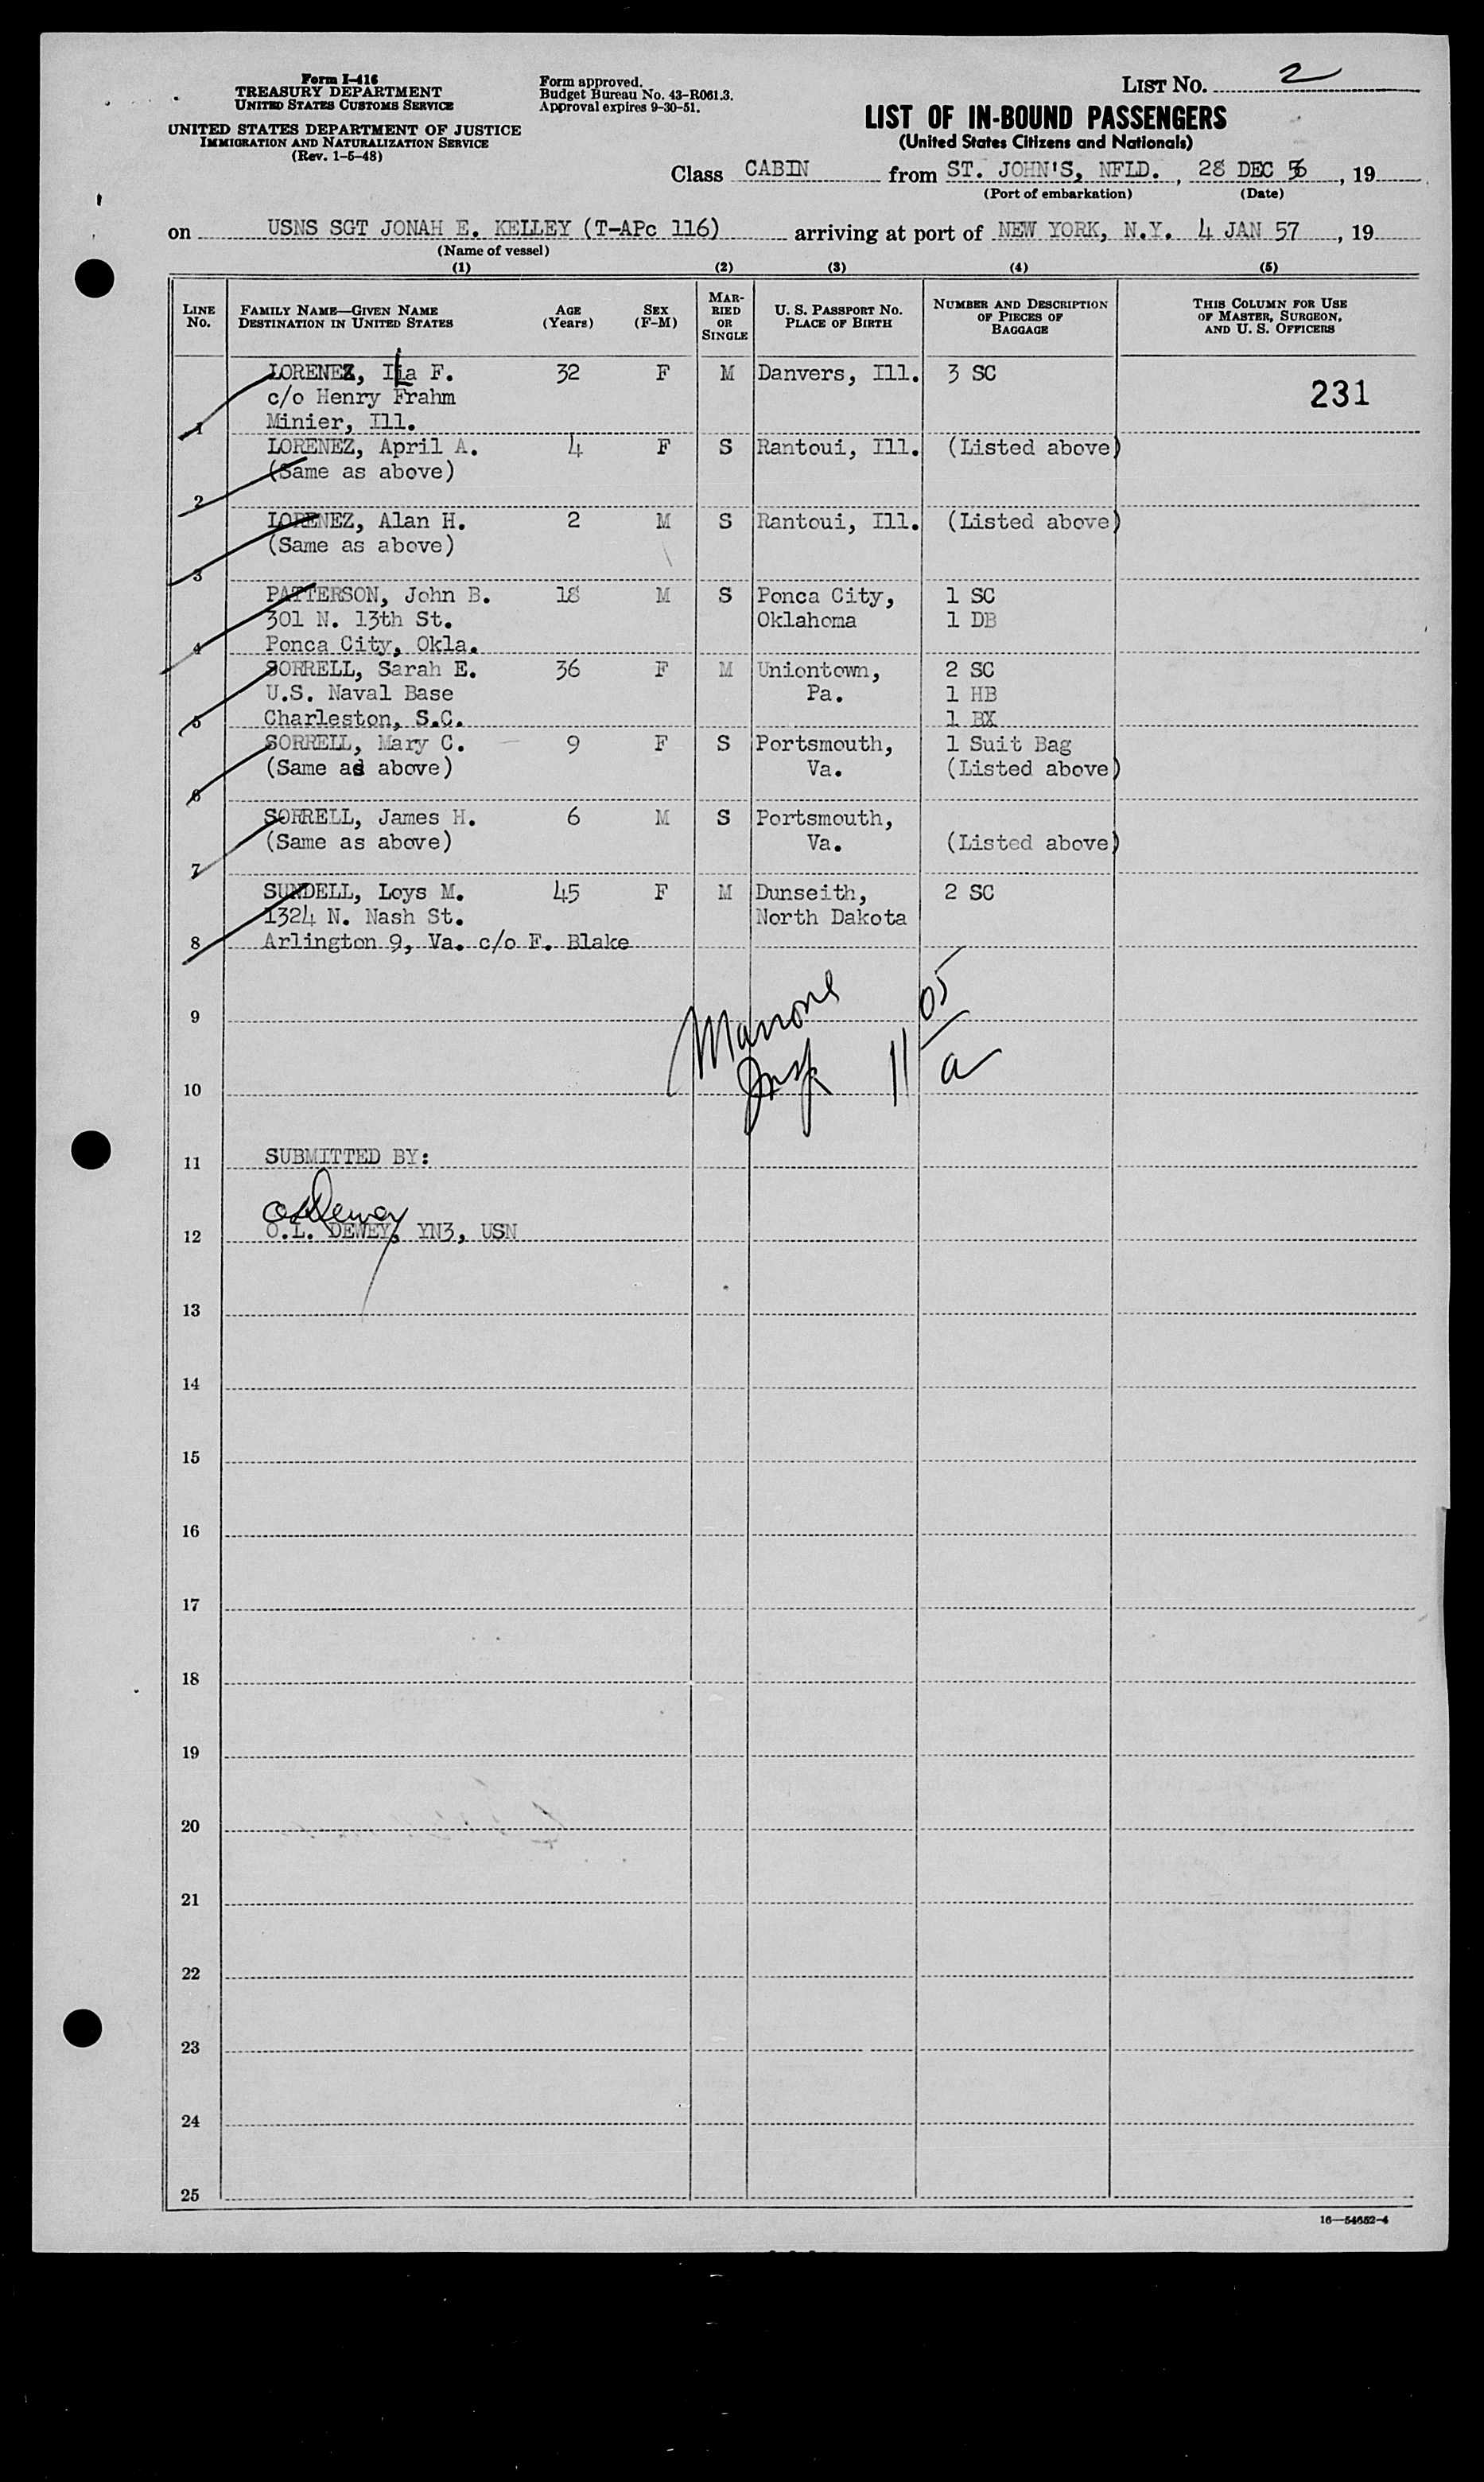 Form I-416
TREASURY DEPARTMENT
UNITED STATES CUSTOMS SERVICE
UNITED STATES DEPARTMENT OF JUSTICE
IMMIGRATION AND NATURALIZATION SERVICE
(Rev. 1-5-48)
Form approved.
Budget Bureau No. 43-R061.3.
Approval expires 9-30-51.
LIST NO. 2
LIST OF IN-BOUND PASSENGERS
(United States Citizens and Nationals)
Class CABIN from ST. JOHN'S, NFLD. , 28 DEC 56 , 19
(Port of embarkation) (Date)
on USNS SGT JONAH E. KELLEY (T-APc 116) arriving at port of NEW YORK, N.Y. 4 JAN 57 , 19
(Name of vessel)
(1) (2) (3) (4) (5)
LINE No. FAMILY NAME—GIVEN NAME DESTINATION IN UNITED STATES AGE (Years) SEX (F-M) MARRIED OR SINGLE U. S. PASSPORT NO. PLACE OF BIRTH NUMBER AND DESCRIPTION OF PIECES OF BAGGAGE THIS COLUMN FOR USE OF MASTER, SURGEON, AND U. S. OFFICERS
LORENEZ, Ila F. 32 F M Danvers, Ill. 3 SC
c/o Henry Frahm 231
1 Minier, Ill.
LORENEZ, April A. 4 F S Rantoui, Ill. (Listed above)
(Same as above)
2
LORENEZ, Alan H. 2 M S Rantoui, Ill. (Listed above)
(Same as above)
3
PATTERSON, John B. 18 M S Ponca City, 1 SC
301 N. 13th St. Oklahoma 1 DB
4 Ponca City, Okla.
SORRELL, Sarah E. 36 F M Uniontown, 2 SC
U.S. Naval Base Pa. 1 HB
5 Charleston, S.C. 1 BX
SORRELL, Mary C. 9 F S Portsmouth, 1 Suit Bag
(Same as above) Va. (Listed above)
6
SORRELL, James H. 6 M S Portsmouth,
(Same as above) Va. (Listed above)
7
SUNDELL, Loys M. 45 F M Dunseith, 2 SC
1324 N. Nash St. North Dakota
8 Arlington 9, Va. c/o F. Blake
9
Marrone 11 05
Insp a
10
11 SUBMITTED BY:
OLDewey
12 O.L. DEWEY, YN3, USN
13
14
15
16
17
18
19
20
21
22
23
24
25
16—54652-4